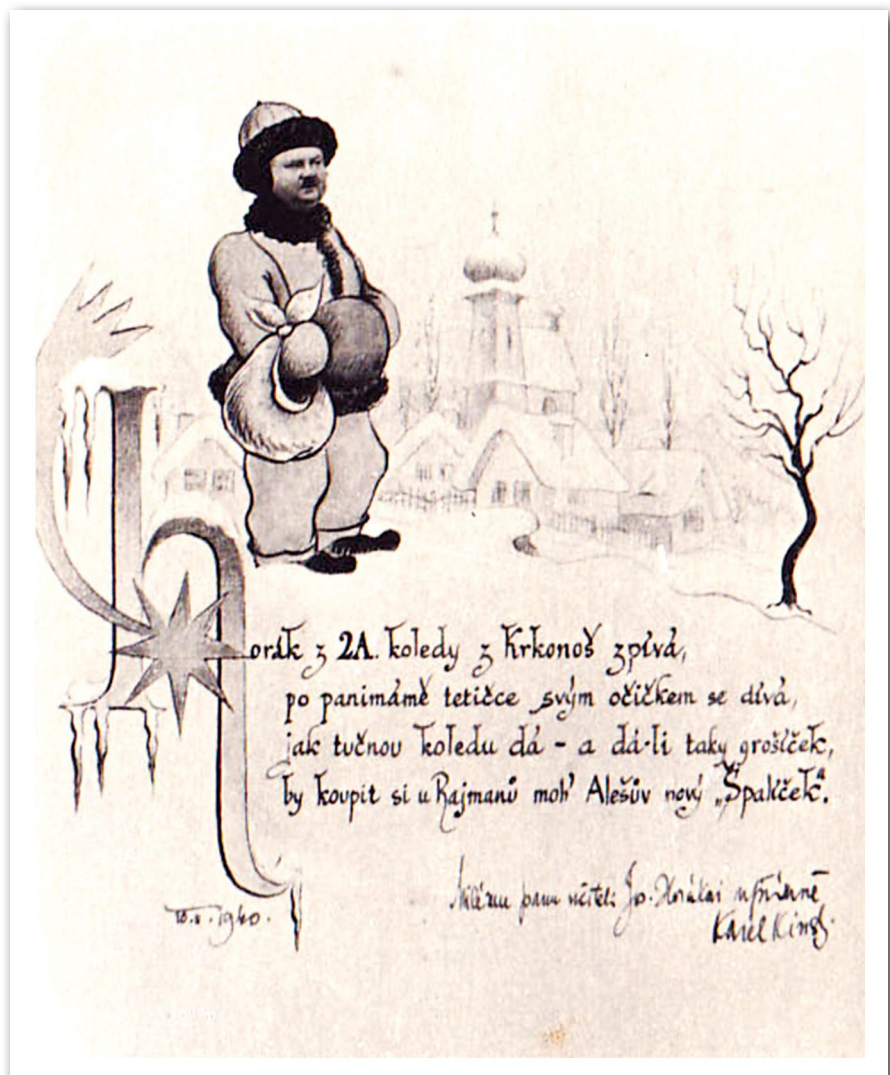 Horák z 2A. koledy z Krkonoš zpívá,
po panímámě tetičce svým očičkem se dívá,
jak tučnou koledu dá - a dá-li taky grošíček,
by koupit si u Rajmanů moh' Alešův nový „Špalíček“.
Milému panu učiteli Jo. Horákovi upřímně
Karel Kinský
1940.